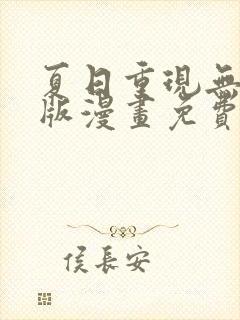 夏日重現無
版漫畫免費
侯長安